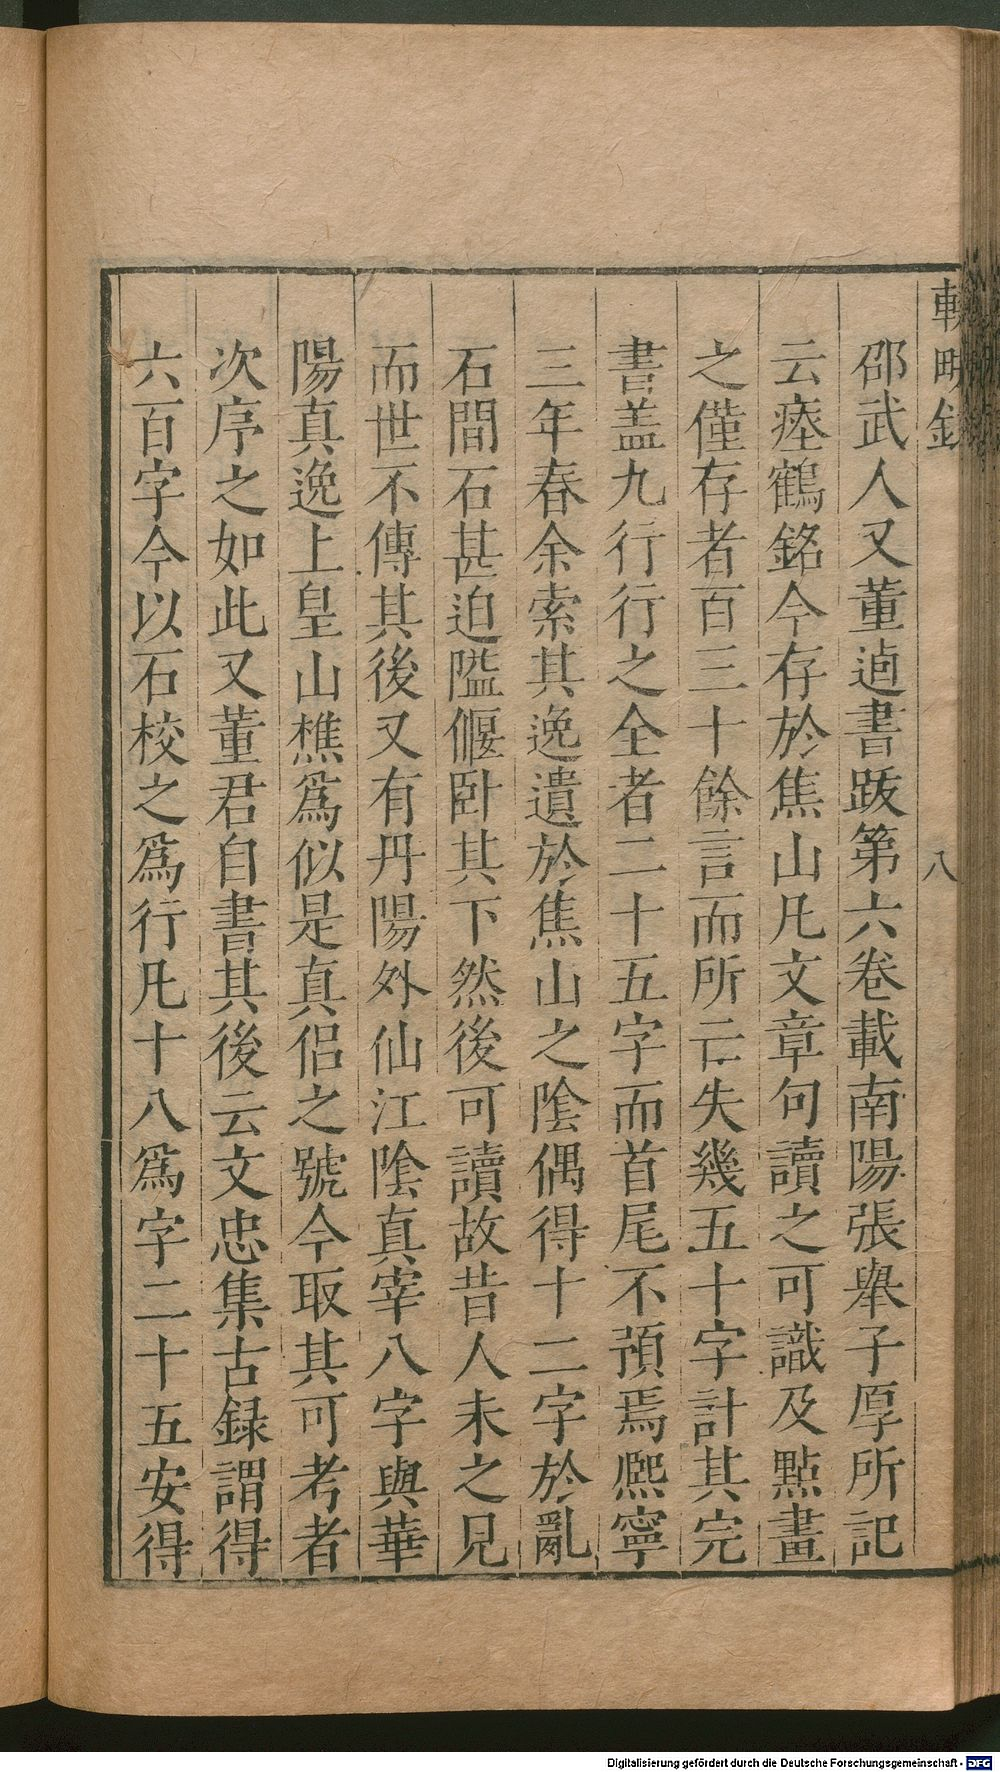 輟畊錄
八
邵武人又董逌書跋第六卷載南陽張舉子厚所記
云瘞鶴銘今存於焦山凡文章句讀之可識及點畫
之僅存者百三十餘言而所亡失幾五十字計其完
書蓋九行行之全者二十五字而首尾不預焉熈寧
三年春余索其逸遺於焦山之陰偶得十二字於亂
石間石甚迫隘偃卧其下然後可讀故昔人未之見
而世不傳其後又有丹陽外仙江陰真宰八字與華
陽真逸上皇山樵爲似是真侶之號今取其可考者
次序之如此又董君自書其後云文忠集古録謂得
六百字今以石校之爲行凡十八爲字二十五安得
Digitalisierung gefördert durch die Deutsche Forschungsgemeinschaft - DFG